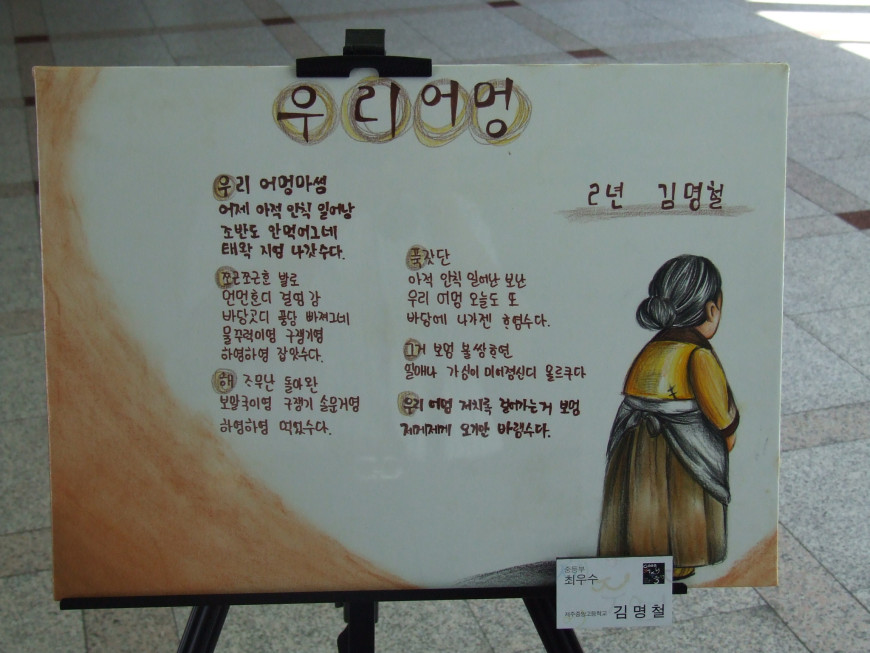 우리 어멍
2년 김명철
우리 어멍마씸
어제 아적 인칙 일어낭
조반도 안먹어그네
태왁 지영 나갔수다.
조근조근훈 발로
먼먼훈디 걸영 감
바당곳디 풍당 빠져그네
물꾸럭이영 구쟁기영
하영하영 잡앗수다.
해 ᄌᆞ무난 돌아완
보말국이영 구쟁기 솔문거영
하영하영 먹었수다.
푹갓단
아적 인칙 일어난 보난
우리 어멍 오늘도 또
바당에 나가젠 훈염수다.
그거 보멍 불쌍훈연
얼매나 가심이 미어점신디 몰르쿠다
우리 어멍 저치룩 걸어가는거 보멍
제게제게 오기만 바램수다.
최우수
김명철